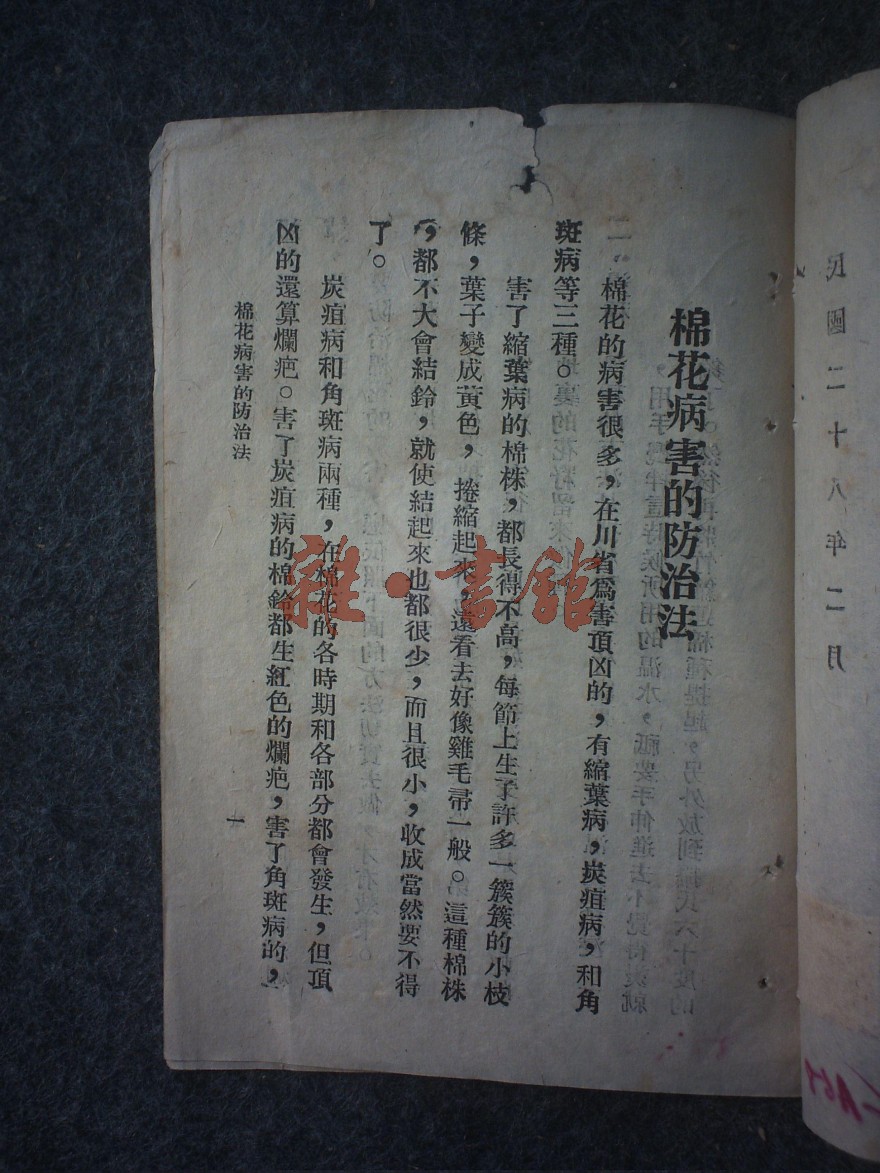 民國二十八年二月
棉花病害的防治法
一、棉花的病害很多，在川省爲害頂凶的，有縮葉病，炭疽病，和角
斑病等三種。
害了縮葉病的棉株，都長得不高，每節上生了許多一簇簇的小枝
條，葉子變成黃色，捲縮起來，遠看去好像雞毛帚一般。這種棉株
，都不大會結鈴，就使結起來也都很少，而且很小，收成當然要不得
了。
炭疽病和角斑病兩種，在棉花的各時期和各部分都會發生，但頂
凶的還算爛疤。害了炭疽病的棉鈴都生紅色的爛疤，害了角斑病的，
棉花病害的防治法
一
雜·書館